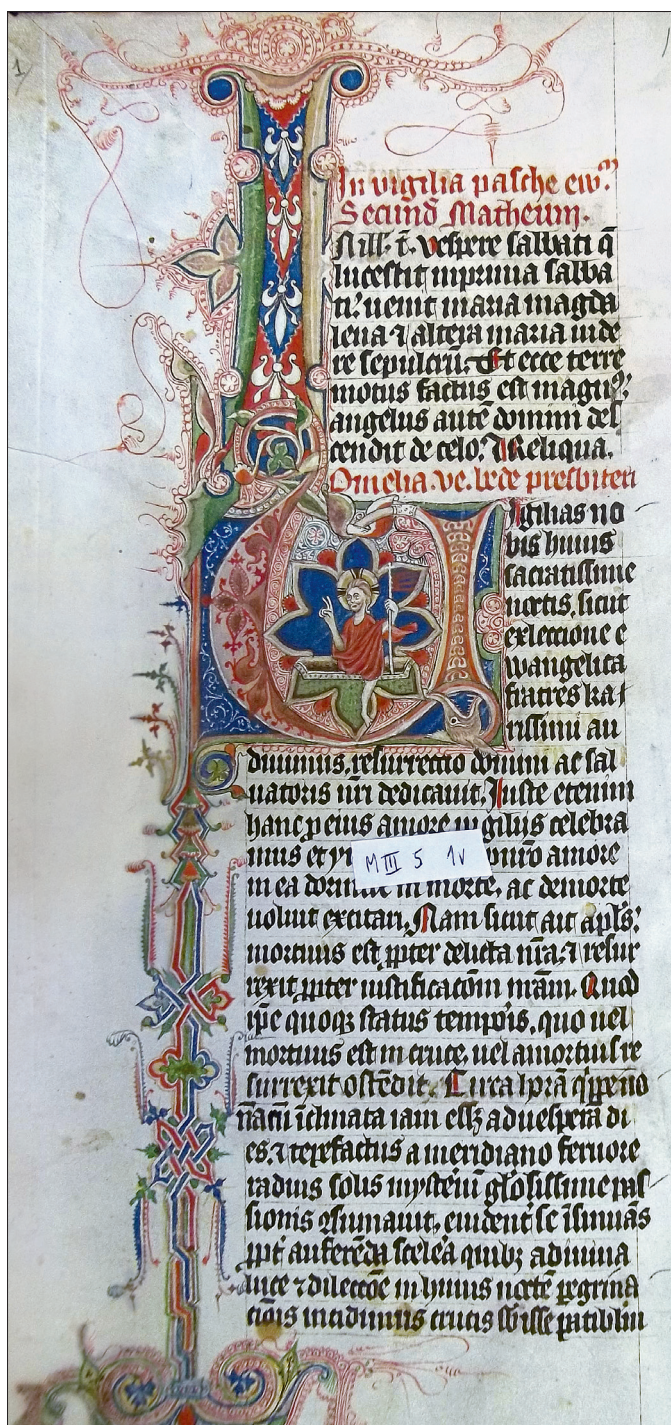 1
In vigilia pasche ew᷒.
Secund̄ Matheum.
In ill̄. t̄. vespere sabbati q̄
lucescit in prima sabba
ti. uenit maria magda
lena ⁊ altera maria uide
re sepulcrū. Et ecce terre
motus factus est magn᷒.
angelus autē domini des
cendit de celo. Et Reliqua.
Omelia ve. bede presbiteri
Vigilias no
bis huius
sacratissime
noctis, sicut
ex leccione e
wangelica
fratres ka
rissimi au
diuimus, resurrectio domini ac sal
uatoris n̄ri dedicauit. Iuste etenim
hanc ꝑ eius amore uigilijs celebra
mus et amore
M III 5 1v
in ea dormire in morte, ac de morte
uoluit excitari. Nam sicut ait apl̄s:
mortuus est ꝓpter delicta nr̄a. ⁊ resur
rexit ꝓpter iustificacōm nr̄am. Quod
ip̄e quoqꝫ status tempoꝛis, quo uel
mortuus est in cruce, uel a mortuis re
surrexit ostēdit. Circa horā
īclinata iam essꝫ ad uesperā di
es. ⁊ tepefactus a meridiano feruore
radius solis mysteriū gl̄osissime pas-
sionis ꝯsumauit, euident̄ se īsinuās
ꝓpt̄ auferēda scelera quibꝫ a diuina
luce ⁊ dileccōe in huius noctē ꝑegrina
cōis incidimus crucis sb̄isse patibulū